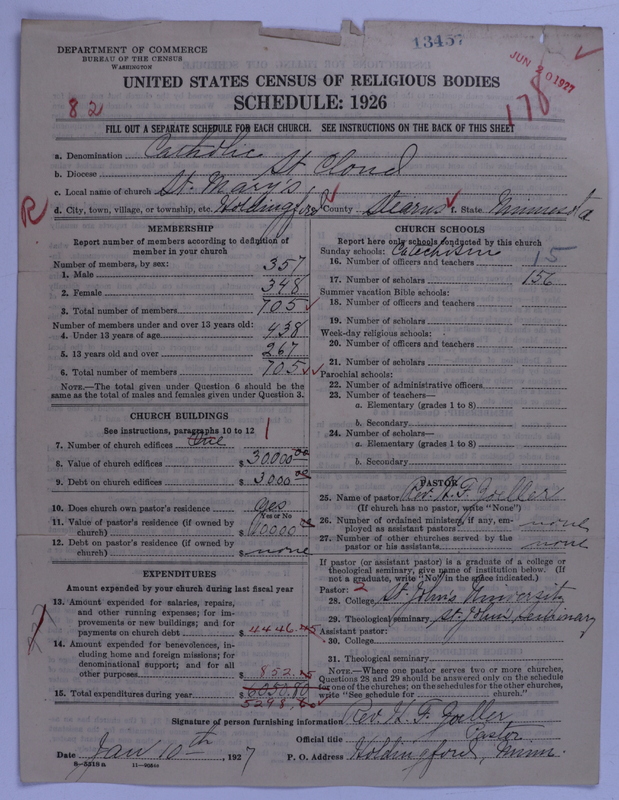 13457
JUN 20 1927
DEPARTMENT OF COMMERCE
BUREAU OF THE CENSUS
WASHINGTON
UNITED STATES CENSUS OF RELIGIOUS BODIES
SCHEDULE: 1926
82
178
FILL OUT A SEPARATE SCHEDULE FOR EACH CHURCH. SEE INSTRUCTIONS ON THE BACK OF THIS SHEET
a. Denomination Catholic
b. Diocese St Cloud
c. Local name of church St. Mary's
R
d. City, town, village, or township, etc. Holdingford County Stearns f. State Minnesota
MEMBERSHIP
Report number of members according to definition of member in your church
Number of members, by sex:
1. Male 357
2. Female 348
3. Total number of members 705
Number of members under and over 13 years old:
4. Under 13 years of age 438
5. 13 years old and over 267
6. Total number of members 705
NOTE.—The total given under Question 6 should be the
same as the total of males and females given under Question 3.
CHURCH BUILDINGS
See instructions, paragraphs 10 to 12
7. Number of church edifices One 1
8. Value of church edifices $ 30000.00
9. Debt on church edifices $ 3000.00
10. Does church own pastor's residence yes
Yes or No
11. Value of pastor's residence (if owned by
church)
12. Debt on pastor's residence (if owned by
church) $ none
EXPENDITURES
Amount expended by your church during last fiscal year
13. Amount expended for salaries, repairs,
and other running expenses; for im-
provements or new buildings; and for
payments on church debt $ 4446.45
14. Amount expended for benevolences, in-
cluding home and foreign missions; for
denominational support; and for all
other purposes $ 852.15
15. Total expenditures during year $ 6050.80
5298.60
CHURCH SCHOOLS
Report here only schools conducted by this church
Sunday schools: Catechism
16. Number of officers and teachers 15
17. Number of scholars 156
Summer vacation Bible schools:
18. Number of officers and teachers
19. Number of scholars
Week-day religious schools:
20. Number of officers and teachers
21. Number of scholars
Parochial schools:
22. Number of administrative officers
23. Number of teachers—
a. Elementary (grades 1 to 8)
b. Secondary
24. Number of scholars—
a. Elementary (grades 1 to 8)
b. Secondary
PASTOR
25. Name of pastor Rev. H. F. Zoeller
(If church has no pastor, write "None")
26. Number of ordained ministers, if any, em-
ployed as assistant pastors none
27. Number of other churches served by the
pastor or his assistants none
If pastor (or assistant pastor) is a graduate of a college or
theological seminary, give name of institution below. (If
not a graduate, write "No" in the space indicated.)
Pastor: 2
28. College St. John's University
29. Theological seminary St. John's Seminary
Assistant pastor:
30. College
31. Theological seminary
NOTE.—Where one pastor serves two or more churches,
Questions 28 and 29 should be answered only on the schedule
for one of the churches; on the schedules for the other churches,
write "See schedule for church."
Signature of person furnishing information Rev. H. F. Zoeller
Official title Pastor
Date Jan 10th, 1927 P. O. Address Holdingford, Minn.
8-5318a 11-9